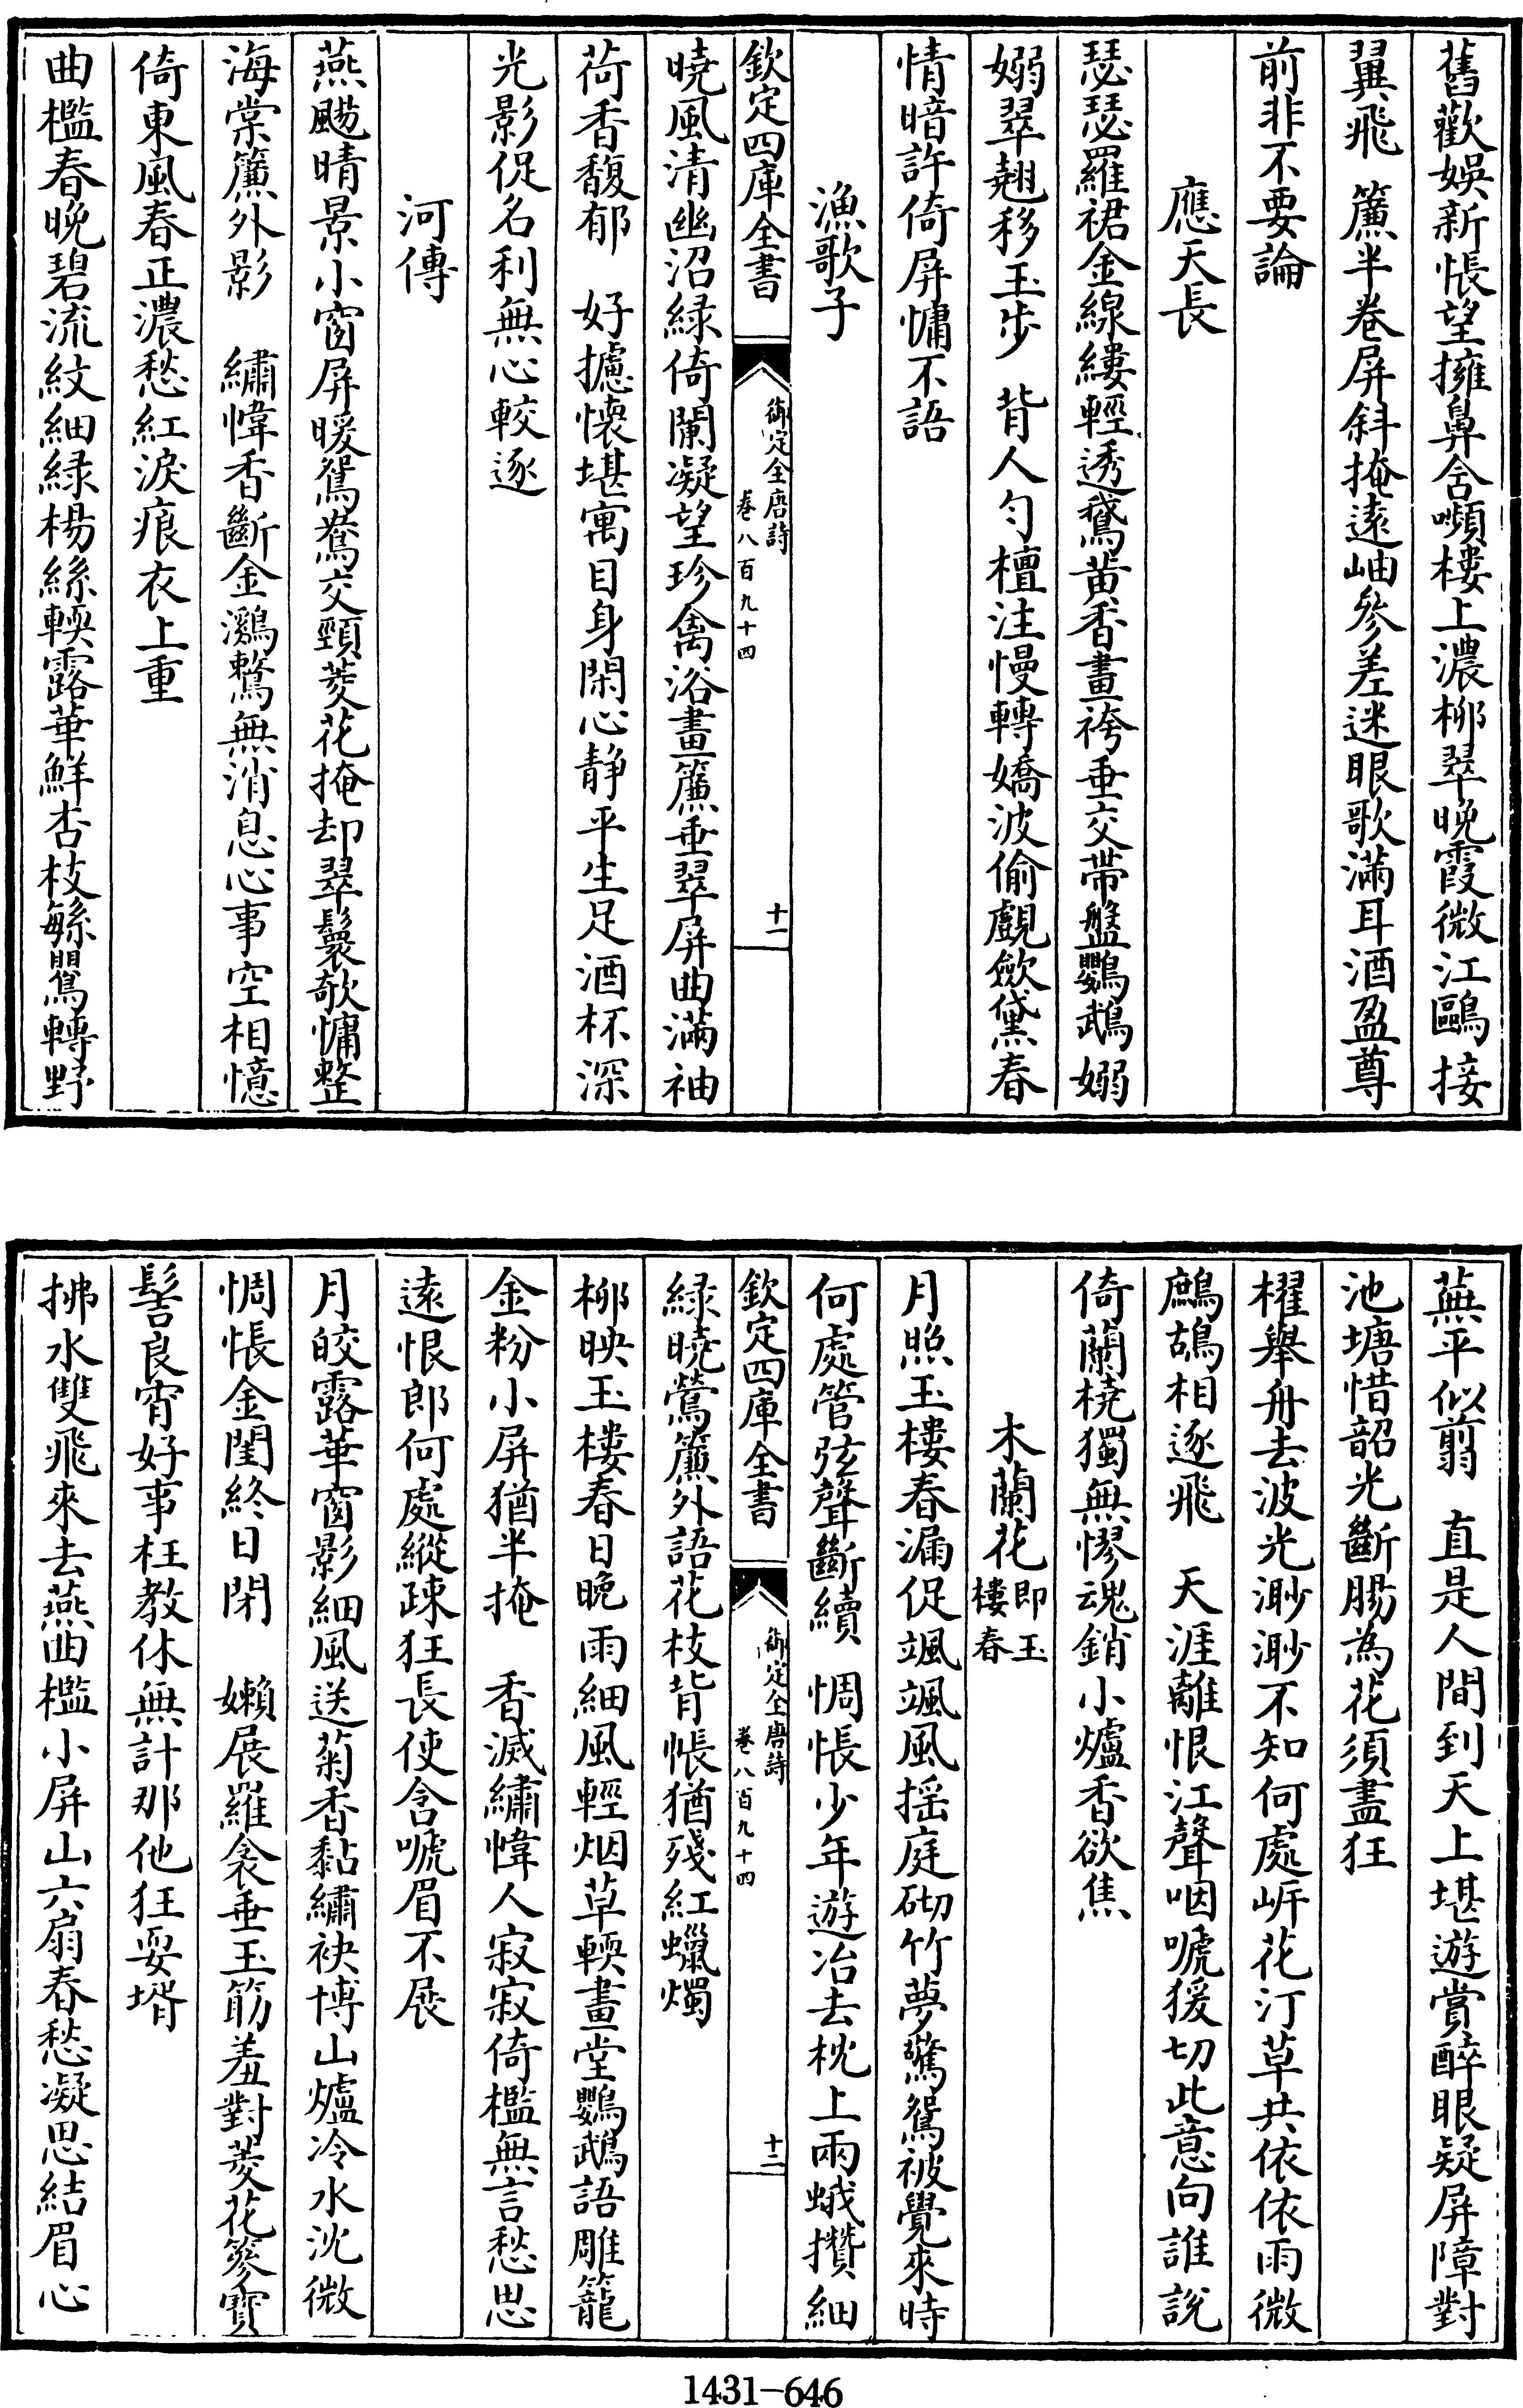 舊歡娛新悵望擁鼻含嚬樓上濃柳翠晚霞微江鷗接
翼飛　簾半卷屏斜掩遠岫參差迷眼歌滿耳酒盈尊
前非不要論
應天長
瑟瑟羅裙金線縷輕透鵞黃香畫袴垂交帶盤鸚鵡嫋
嫋翠翹移玉步　背人勻檀注慢轉嬌波偷覰斂黛春
情暗許倚屏慵不語
漁歌子
欽定四庫全書　御定全唐詩　卷八百九十四　十一
曉風清幽沼綠倚闌凝望珍禽浴畫簾垂翠屏曲滿袖
荷香馥郁　好攄懷堪寓目身閑心靜平生足酒杯深
光影促名利無心較逐
河傳
燕颺晴景小窗屏暖鴛鴦交頸菱花掩却翠鬟欹慵整
海棠簾外影　繡幃香斷金鸂鷘無消息心事空相憶
倚東風春正濃愁紅淚痕衣上重
曲檻春晚碧流紋細綠楊絲輭露華鮮杏枝繁鶯轉野
蕪平似翦　直是人間到天上堪遊賞醉眼疑屏障對
池塘惜韶光斷腸為花須盡狂
櫂舉舟去波光渺渺不知何處㟁花汀草共依依雨微
鷓鴣相逐飛　天涯離恨江聲咽唬猨切此意向誰說
倚蘭橈獨無憀魂銷小爐香欲焦
木蘭花即玉樓春
月照玉樓春漏促颯颯風摇庭砌竹夢驚鴛被覺來時
何處管弦聲斷續　惆悵少年遊冶去枕上兩蛾攢細
欽定四庫全書　御定全唐詩　卷八百九十四　十二
綠曉鶯簾外語花枝背帳猶殘紅蠟燭
柳映玉樓春日晚雨細風輕烟草輭畫堂鸚鵡語雕籠
金粉小屏猶半掩　香滅繡幃人寂寂倚檻無言愁思
遠恨郎何處縱疎狂長使含唬眉不展
月皎露華窗影細風送菊香黏繡袂博山爐冷水沈微
惆悵金閨終日閉　嬾展羅衾垂玉筯羞對菱花篸寶
髻良宵好事枉教休無計那他狂耍壻
拂水雙飛來去燕曲檻小屏山六扇春愁凝思結眉心
1431-646